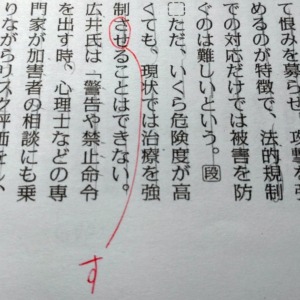 て恨みを募らせ、攻撃を強
めるのが特徴で、法的規制
での対応だけでは被害を防
ぐのは難しいという。段
ただ、いくら危険度が高
くても、現状では治療を強
制させることはできない。
広井氏は「警告や禁止命令
を出す時、心理士などの専
門家が加害者の相談にも乗
りながらリスク評価をし、
す